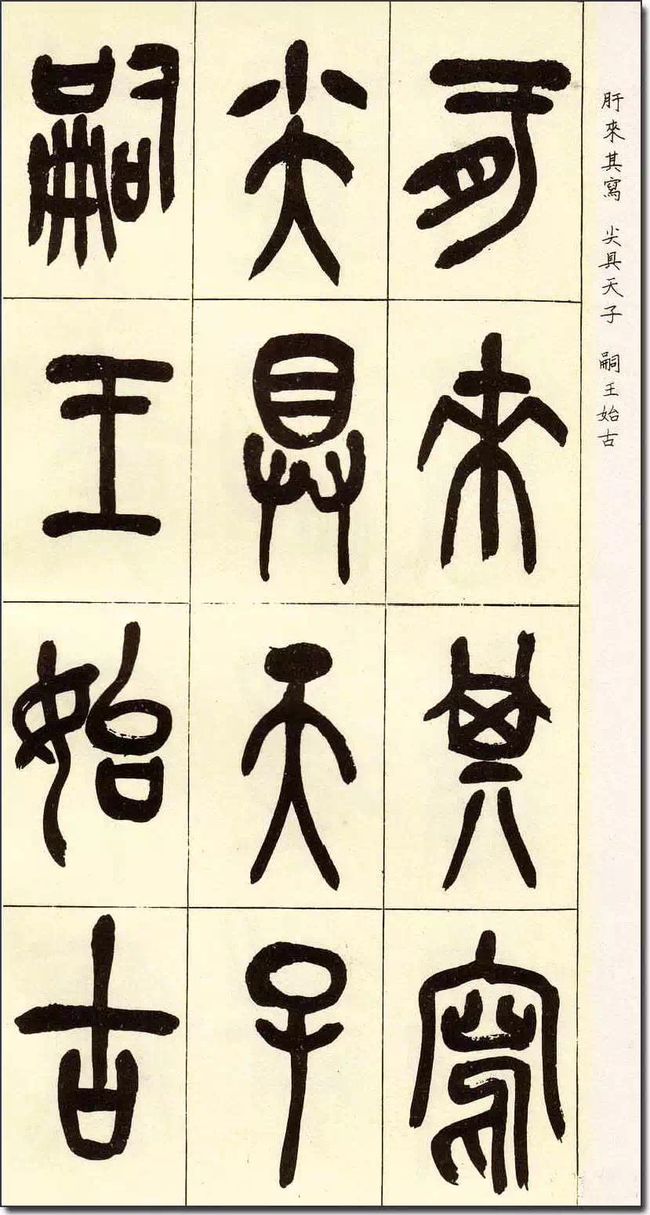 肝來其寫 尖具天子 嗣王始古
肝來其寫
尖具天子
嗣王始古